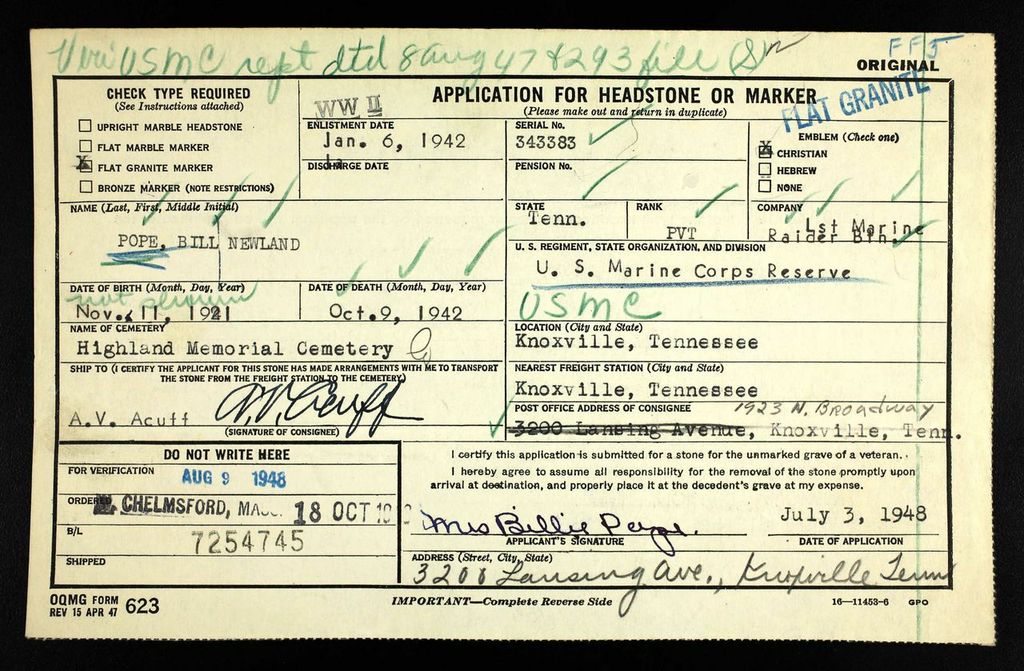 Veri USMC rept dtd 8 aug 47 & 293 file (S)
FF5
ORIGINAL
FLAT GRANITE
CHECK TYPE REQUIRED
(See Instructions attached)
UPRIGHT MARBLE HEADSTONE
FLAT MARBLE MARKER
X FLAT GRANITE MARKER
BRONZE MARKER (NOTE RESTRICTIONS)
WW II
APPLICATION FOR HEADSTONE OR MARKER
(Please make out and return in duplicate)
ENLISTMENT DATE
Jan. 6, 1942
DISCHARGE DATE
SERIAL No.
343383
PENSION No.
EMBLEM (Check one)
X CHRISTIAN
HEBREW
NONE
NAME (Last, First, Middle Initial)
POPE, BILL NEWLAND
STATE
Tenn.
RANK
PVT
COMPANY
1st Marine
Raider Btn.
U. S. REGIMENT, STATE ORGANIZATION, AND DIVISION
U. S. Marine Corps Reserve
USMC
DATE OF BIRTH (Month, Day, Year)
not shown
Nov. 11, 1921
DATE OF DEATH (Month, Day, Year)
Oct.9, 1942
NAME OF CEMETERY
Highland Memorial Cemetery
LOCATION (City and State)
Knoxville, Tennessee
SHIP TO (I CERTIFY THE APPLICANT FOR THIS STONE HAS MADE ARRANGEMENTS WITH ME TO TRANSPORT
THE STONE FROM THE FREIGHT STATION TO THE CEMETERY)
A.V. Acuff A.V. Acuff
(SIGNATURE OF CONSIGNEE)
NEAREST FREIGHT STATION (City and State)
Knoxville, Tennessee
POST OFFICE ADDRESS OF CONSIGNEE 1923 N. BROADWAY
3200 Lansing Avenue, Knoxville, Tenn.
DO NOT WRITE HERE
FOR VERIFICATION
AUG 9 1948
ORDERED
CHELMSFORD, MASS. 18 OCT
B/L
7254745
SHIPPED
I certify this application is submitted for a stone for the unmarked grave of a veteran.
I hereby agree to assume all responsibility for the removal of the stone promptly upon
arrival at destination, and properly place it at the decedent's grave at my expense.
Mrs Billie Pope. July 3, 1948
APPLICANT'S SIGNATURE DATE OF APPLICATION
ADDRESS (Street, City, State)
3200 Lansing Ave., Knoxville Tenn
OQMG FORM
REV 15 APR 47 623
IMPORTANT—Complete Reverse Side
16—11453-6 GPO